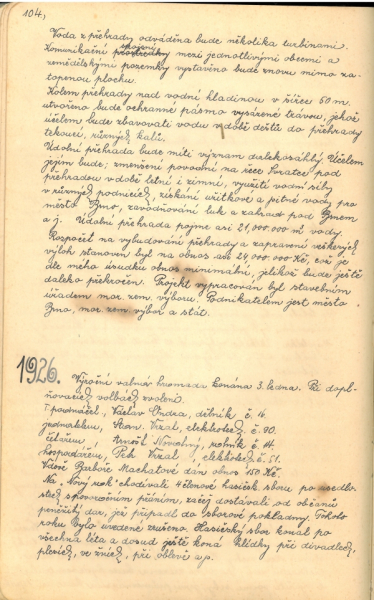 104,
Voda z přehrady odváděna bude několika turbinami.
Komunikační spojení mezi jednotlivými obcemi a
zemědělskými pozemky vystavěno bude znovu mimo za-
topenou plochu.
Kolem přehrady nad vodní hladinou v šířce 50 m.
utvořeno bude ochranné pásmo vysázené travou, jehož
účelem bude zbavovati vodu v době dešťů do přehrady
tekoucí, různých kalů.
Údolní přehrada bude míti význam dalekosáhlý. Účelem
jejím bude; zmenšení povodní na řece Svratce pod
přehradou v době letní i zimní, využití vodní síly
v různých podnicích, získání užitkové a pitné vody pro
město Brno, zavodňování luk a zahrad pod Brnem
a j. Údolní přehrada pojme asi 21,000.000 m³ vody.
Rozpočet na vybudování přehrady a zapravení veškerých
výloh stanoven byl na obnos asi 24,000.000 Kč, což je
dle mého úsudku obnos minimální, jelikož bude ještě
daleko překročen. Projekt vypracován byl stavebním
úřadem mor. zem. výboru. Podnikatelem jest město
Brno, mor. zem. výbor a stát.
1926. Výroční valná hromada konána 3. ledna. Při dopl-
ňovacích volbách zvoleni.
Václav Ondra, dělník č. 16.
jednatelem, Stan. Vrzal, elektrotech. č. 90.
Arnošt Novotný, rolník č. 44.
hospodářem, Petr Vrzal, elektrotech. č. 51.
Vdově Barboře Machalové dán obnos 150 Kč.
Na „Nový rok" chodívali 4 členové hasičsk. sboru po sedlo-
s novoročním přáním, začež dostávali od občanů
peněžitý dar, jež připadl do sborové pokladny. Tohoto
roku bylo uvedené zrušeno. Hasičský sbor konal po
všechna léta a dosud ještě koná hlídky při divadlech,
plesích, ve žních, při oblevě a p.